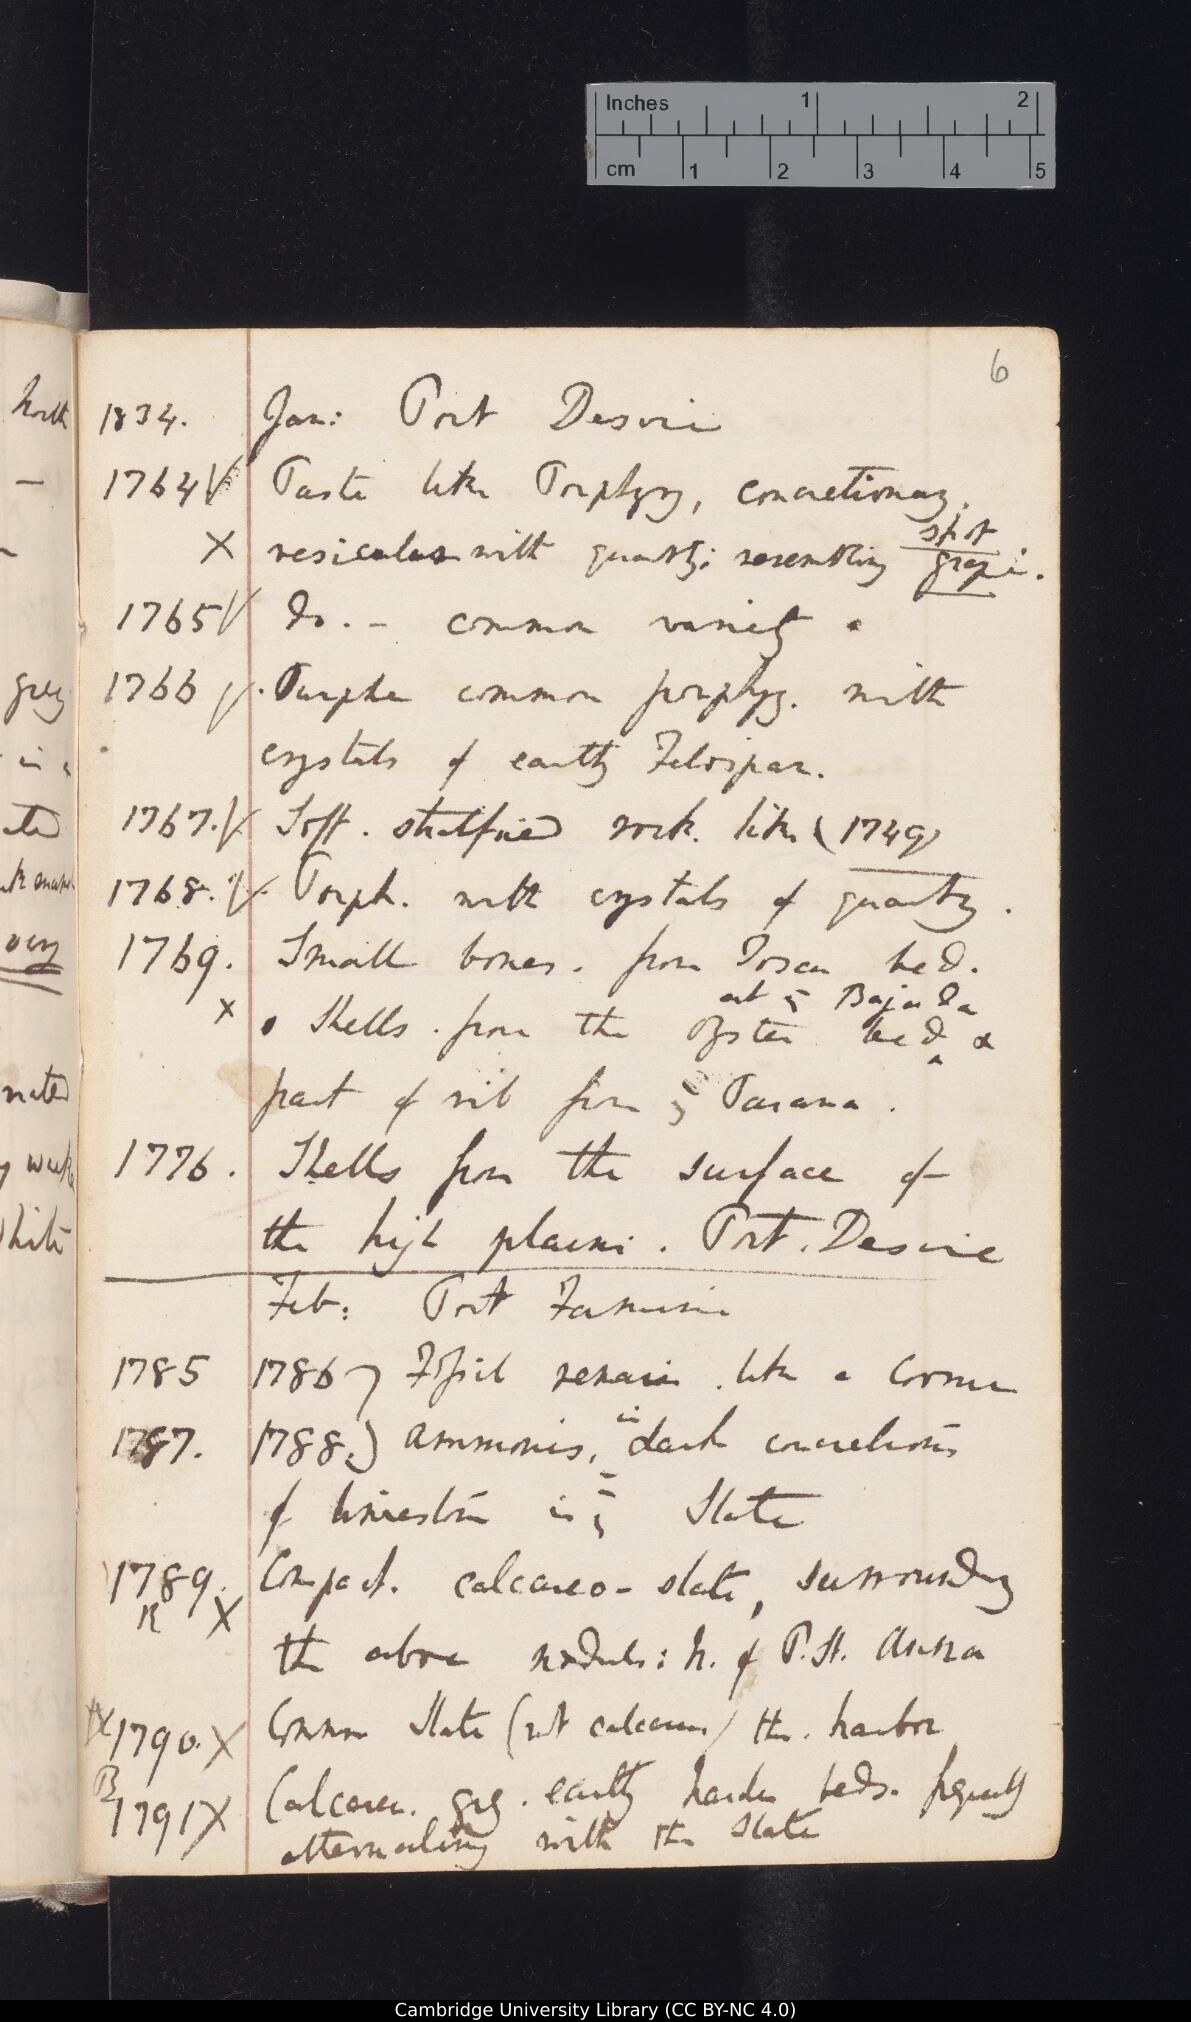 Inches 1 2
cm 1 2 3 4 5
6
North
grey
in a
very
white
1834. Jan: Port Desire
1764 Paste like Porphyry, concretionary,
X vesicular with quartz; resembling spot
grape.
1765 Do. - common variety
1766 Purple common porphyry. with
crystals of earthy Feldspar.
1767. Soft. stratified rock. like (1749)
1768. Porph. with crystals of quartz.
1769. Small bones. from Tosca bed.
at Bajada
X Shells. from the Oyster bed &
part of rib from Parana.
1776. Shells from the surface of
the high plains. Port. Desire
Feb: Port Famine
1785 1786) Fossil remain. like a Cornu
1787. 1788.) ammonis, in dark concretions
of limestone in Slate
1789. Compact. calcareo-slate, surrounding
R X the above nodule: N. of P. St. Anna
X 1790. X Common Slate (not calcareous) the. harbor
1791 X Calcareo. grey. earthy harder beds. frequently
alternating with the Slate
Cambridge University Library (CC BY-NC 4.0)